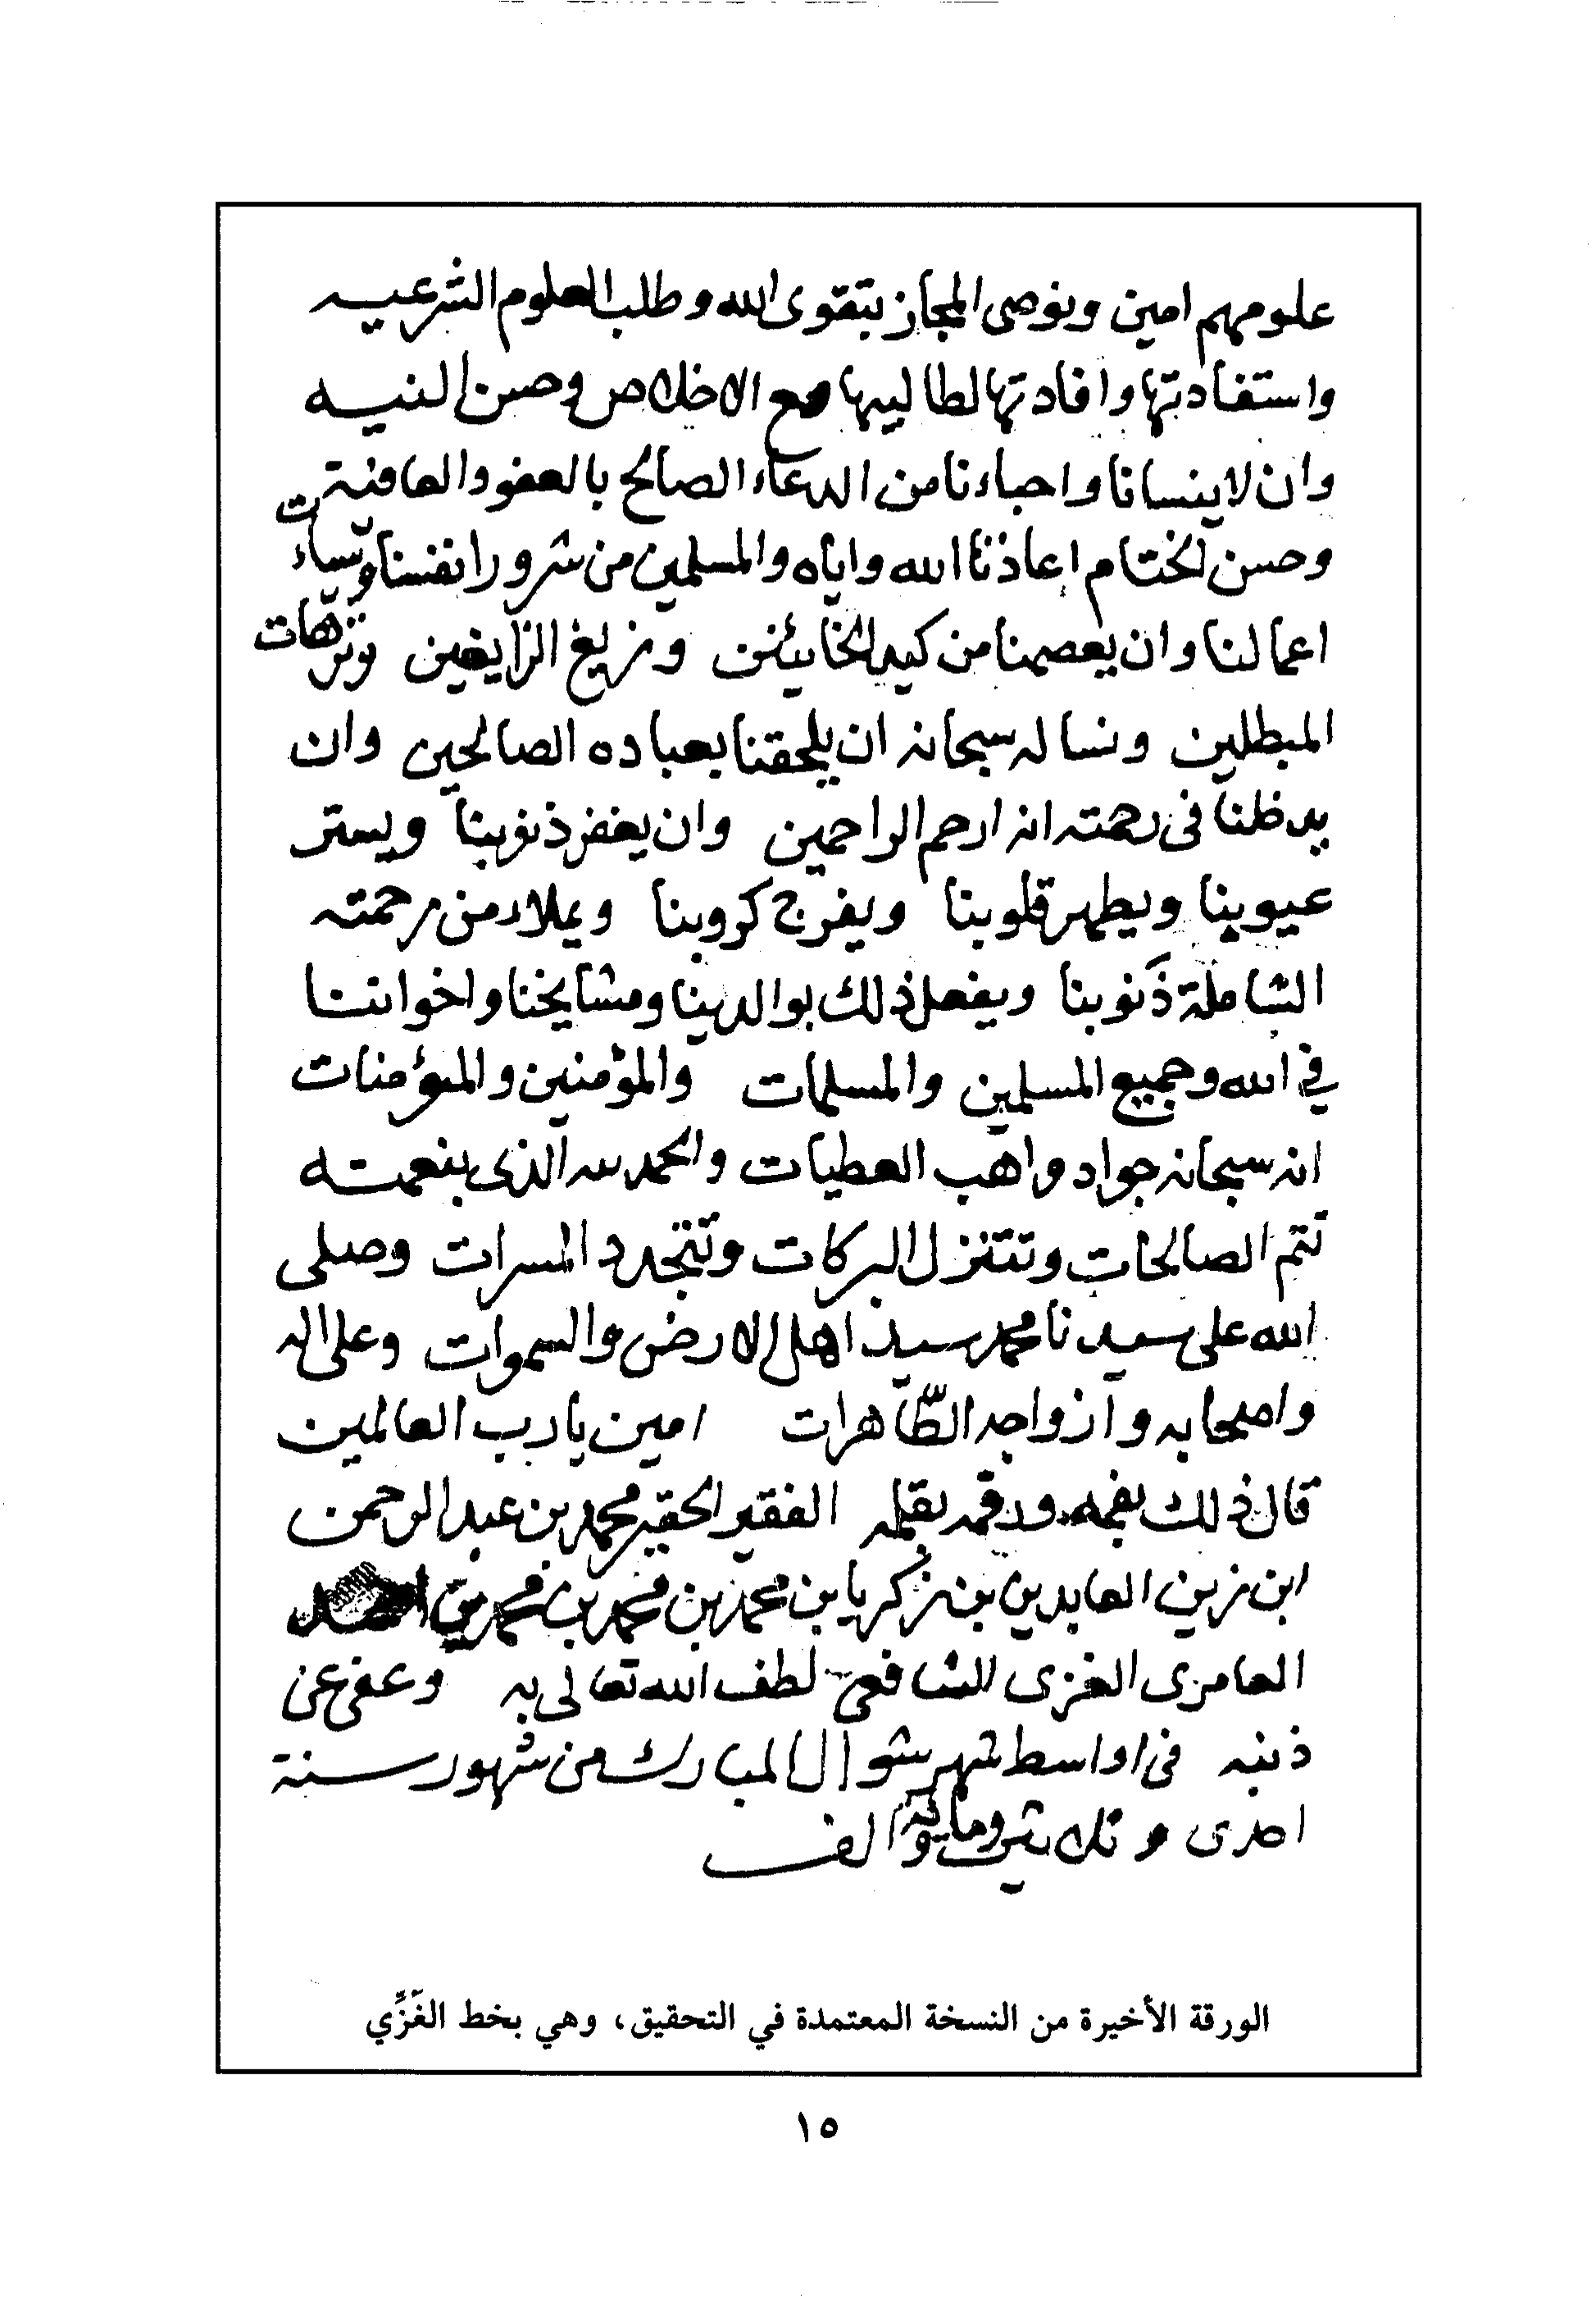 علومهم امين ونوصى المجاز بتقوى الله وطلب العلوم الشرعيه
واستفادتها وافادتها لطالبيها مع الاخلاص وحسن النيه
وان لا ينسانا واحباءنا من الدعاء الصالح بالعفو والعافية
وحسن الختام اعاذنا الله واياه والمسلمين من شرور انفسنا وسيأت
اعمالنا وان يعصمنا من كيد الخائنين وزيغ الزايغين وترهات
المبطلين ونساله سبحانه ان يلحقنا بعباده الصالحين وان
يدخلنا فى رحمته انه ارحم الراحمين وان يغفر ذنوبنا ويستر
عيوبنا ويطهر قلوبنا ويفرج كروبنا ويملاء من رحمته
الشاملة ذنوبنا ويفعل ذلك بوالدينا ومشايخنا واخواننا
في الله وجميع المسلمين والمسلمات والمؤمنين والمؤمنات
انه سبحانه جواد واهب العطيات والحمد لله الذى بنعمته
تتم الصالحات وتتنزل البركات وتتجدد المسرات وصلى
الله على سيدنا محمد سيد اهل الارض والسموات وعلى اله
واصحابه وازواجه الطّاهرات امين يا رب العالمين
قال ذلك بفمه ورقمه بقلمه الفقير الحقير محمد بن عبد الرحمن
ابن زين العابدين بن زكريا بن محمد بن محمد بن محمد بن احمد
العامرى الغزى الشافعى لطف الله تعالى به وعفى عن
ذنبه فى اواسط شهر شوال المبارك من شهور سنة
احدى وثلاثين ومائة والف
الورقة الأخيرة من النسخة المعتمدة في التحقيق، وهي بخط الغَزِّي
١٥